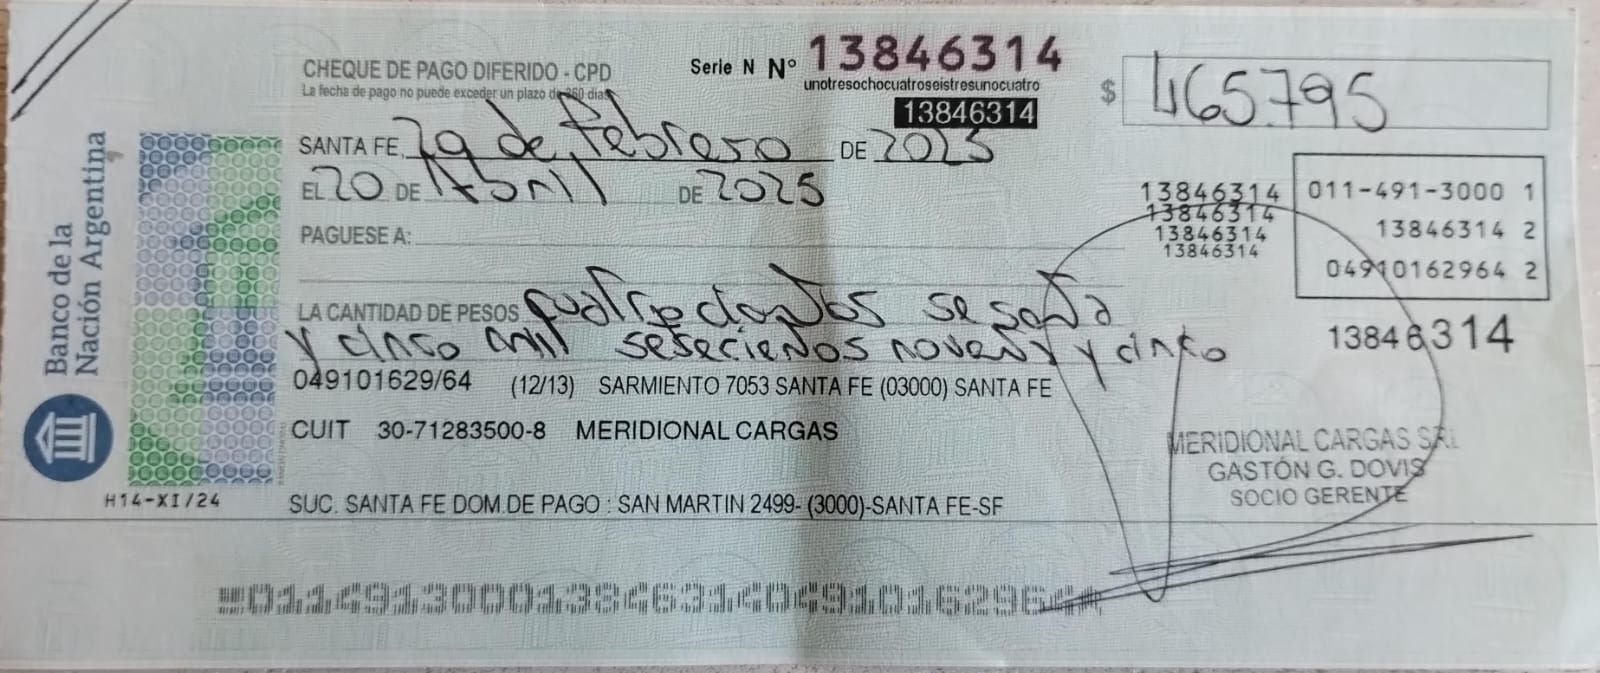 CHEQUE DE PAGO DIFERIDO - CPD
La fecha de pago no puede exceder un plazo de 360 dias
Serie N Nº 13846314
unotresochocuatroseistresunocuatro
13846314
$ 465795
SANTA FE, 29 de febrero DE 2025
EL 20 DE Abril DE 2025
PAGUESE A:
LA CANTIDAD DE PESOS cuatrocientos sesenta
y cinco mil setecientos noventa y cinco
049101629/64 (12/13) SARMIENTO 7053 SANTA FE (03000) SANTA FE
CUIT 30-71283500-8 MERIDIONAL CARGAS
SUC. SANTA FE DOM.DE PAGO : SAN MARTIN 2499- (3000)-SANTA FE-SF
13846314
13846314
13846314
13846314
011-491-3000 1
13846314 2
04910162964 2
13846314
MERIDIONAL CARGAS SRL
GASTÓN G. DOVIS
SOCIO GERENTE
Banco de la
Nación Argentina
H14-XI/24
01149130001384631404910162964